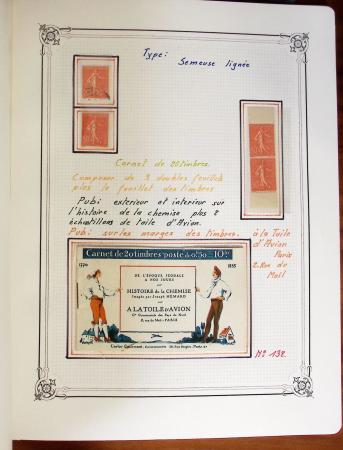 Type:
Semeuse lignée
Carnet de 20 timbres.
Composer de 3 doubles feuillets
plus le feuillet des timbres
Pubi exterieur et interieur sur
l'histoire de la chemise plus 8
échantillons de toile d'Avion.
Pubi sur les marges des timbres.
à la Toile
d'Avion
Paris
2. Rue du
Mail
Carnet de 20 timbres poste à 0f.50 = 10f.
DE L'ÉPOQUE FÉODALE
A NOS JOURS
HISTOIRE DE LA CHEMISE
Imagée par Joseph HÉMARD
A LA TOILE D'AVION
2, rue du Mail - PARIS
N° 132.